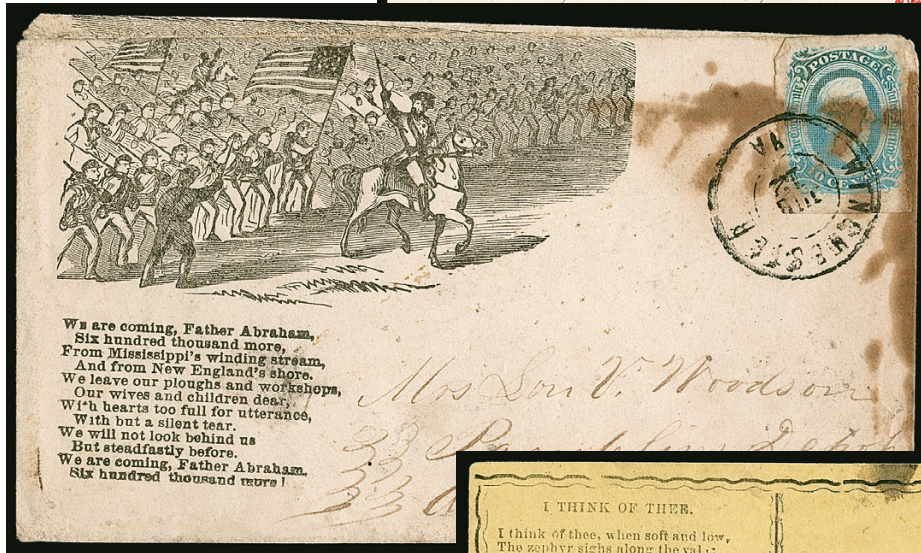 POSTAGE
WINCHESTER
VA
We are coming, Father Abraham,
Six hundred thousand more,
From Mississippi's winding stream,
And from New England's shore.
We leave our ploughs and workshops,
Our wives and children dear,
With hearts too full for utterance,
With but a silent tear.
We will not look behind us
But steadfastly before.
We are coming, Father Abraham.
Six hundred thousand more!
Mrs Lou V. Woodson
I THINK OF THEE.
I think of thee, when soft and low,
The zephyr sighs along the